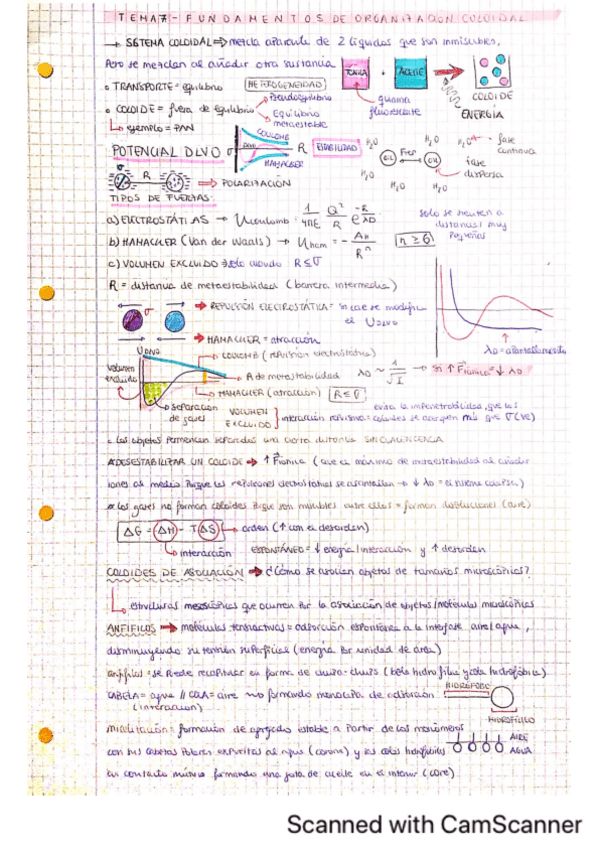 TEMA 7 - FUNDAMENTOS DE ORGANIZACIÓN COLOIDAL
→ SISTEMA COLOIDAL ⇒ mezcla aparente de 2 líquidos que son inmiscibles,
Pero se mezclan al añadir otra sustancia.
TONICA + ACEITE
COLOIDE
ENERGÍA
quinina fluorescente
• TRANSPORTE = equilibrio
HETEROGENEIDAD
• COLOIDE = fuera de equilibrio
Pseudoequilibrio
Equilibrio metaestable
ejemplo = PAN
POTENCIAL DLVO
σ
COULOMB
DLVO
R
HAMACKER
ESTABILIDAD
H2O
H2O
H2O
OIL
OIL
H2O
H2O
H2O
fase continua
fase dispersa
R
⇒ POLARIZACIÓN
TIPOS DE FUERZAS:
a) ELECTROSTÁTICAS → Ucoulomb = 1/4πE Q²/R e^-R/λD
solo se sienten a distancias muy pequeñas
b) HAMACKER (Van der Waals) → Uham = - AH/R^n n ≥ 6
c) VOLUMEN EXCLUIDO → solo cuando R ≤ σ
R = distancia de metaestabilidad (barrera intermedia)
σ
→ REPULSIÓN ELECTROSTÁTICA = si cae se modifica
el UDLVO
→ HAMACKER = atracción
λD = apantallamiento
UDLVO
→ COULOMB (repulsión electrostática)
Volumen excluido
→ R de metaestabilidad
λD ~ 1/√I → Si ↑ Fiónica = ↓ λD
→ HAMACKER (atracción) R ≤ σ
separación de fases
VOLUMEN EXCLUIDO
interacción repulsiva = coloides se acerquen más que σ (Ve)
evita la impenetrabilidad, que los
◦ los objetos permanecen separados una cierta distancia SIN COALESCENCIA
DESESTABILIZAR UN COLOIDE → ↑ Fiónica (cae el máximo de metaestabilidad al añadir
iones al medio Porque las repulsiones electrostáticas se apantallan → ↓ λD = el sistema colapsa)
los gases no forman coloides Porque son miscibles entre ellos = forman disoluciones (aire)
ΔG = ΔH - TΔS → orden (↑ con el desorden)
interacción
ESPONTÁNEO = ↓ energía/interacción y ↑ desorden
COLOIDES DE ASOCIACIÓN → ¿Cómo se asocian objetos de tamaños microscópicos?
estructuras mesoscópicas que ocurren por la asociación de objetos/moléculas microscópicas
ANFIFILOS → moléculas tensoactivas = adsorción espontánea a la interfase aire/agua,
disminuyendo su tensión superficial (energía por unidad de área)
anfifilos = se Puede recapitular en forma de chupa-chups (bola hidrofílica y cola hidrofóbica)
CABEZA = agua // COLA = aire → formando monocapa de adsorción
(interacción)
HIDRÓFOBO
HIDRÓFILO
micelización: formación de agregado estable a partir de los monómeros
AIRE
con sus cabezas Polares expuestas al agua (corona) y las colas hidrofóbicas
AGUA
en contacto mutuo formando una gota de aceite en el interior (core)
Scanned with CamScanner